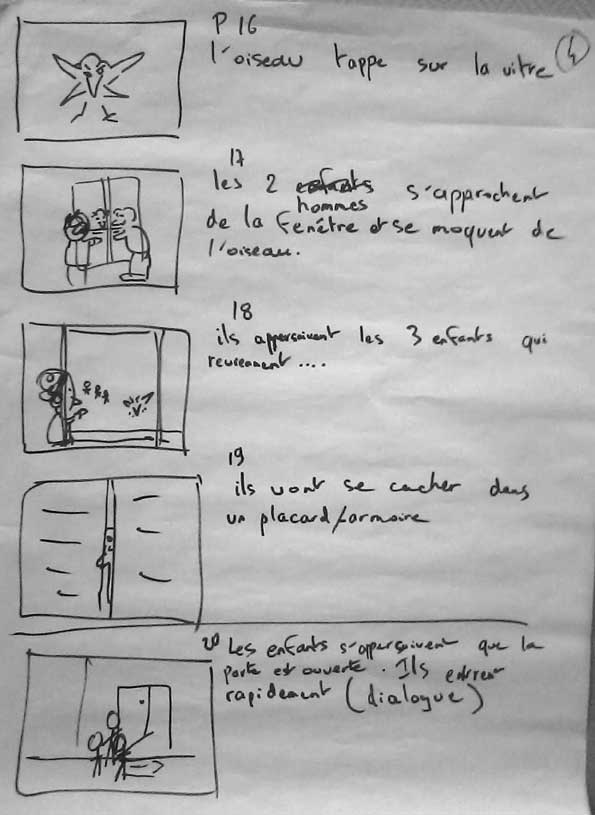 P 16
4
l'oiseau tappe sur la vitre
17
les 2 enfants s'approchent
hommes
de la fenêtre et se moquent de
l'oiseau.
18
ils appersoivent les 3 enfants qui
reviennent ....
19
ils vont se cacher dans
un placard/armoire
20 Les enfants s'apperçoivent que la
porte est ouverte. Ils entrent
rapidement (dialogue)